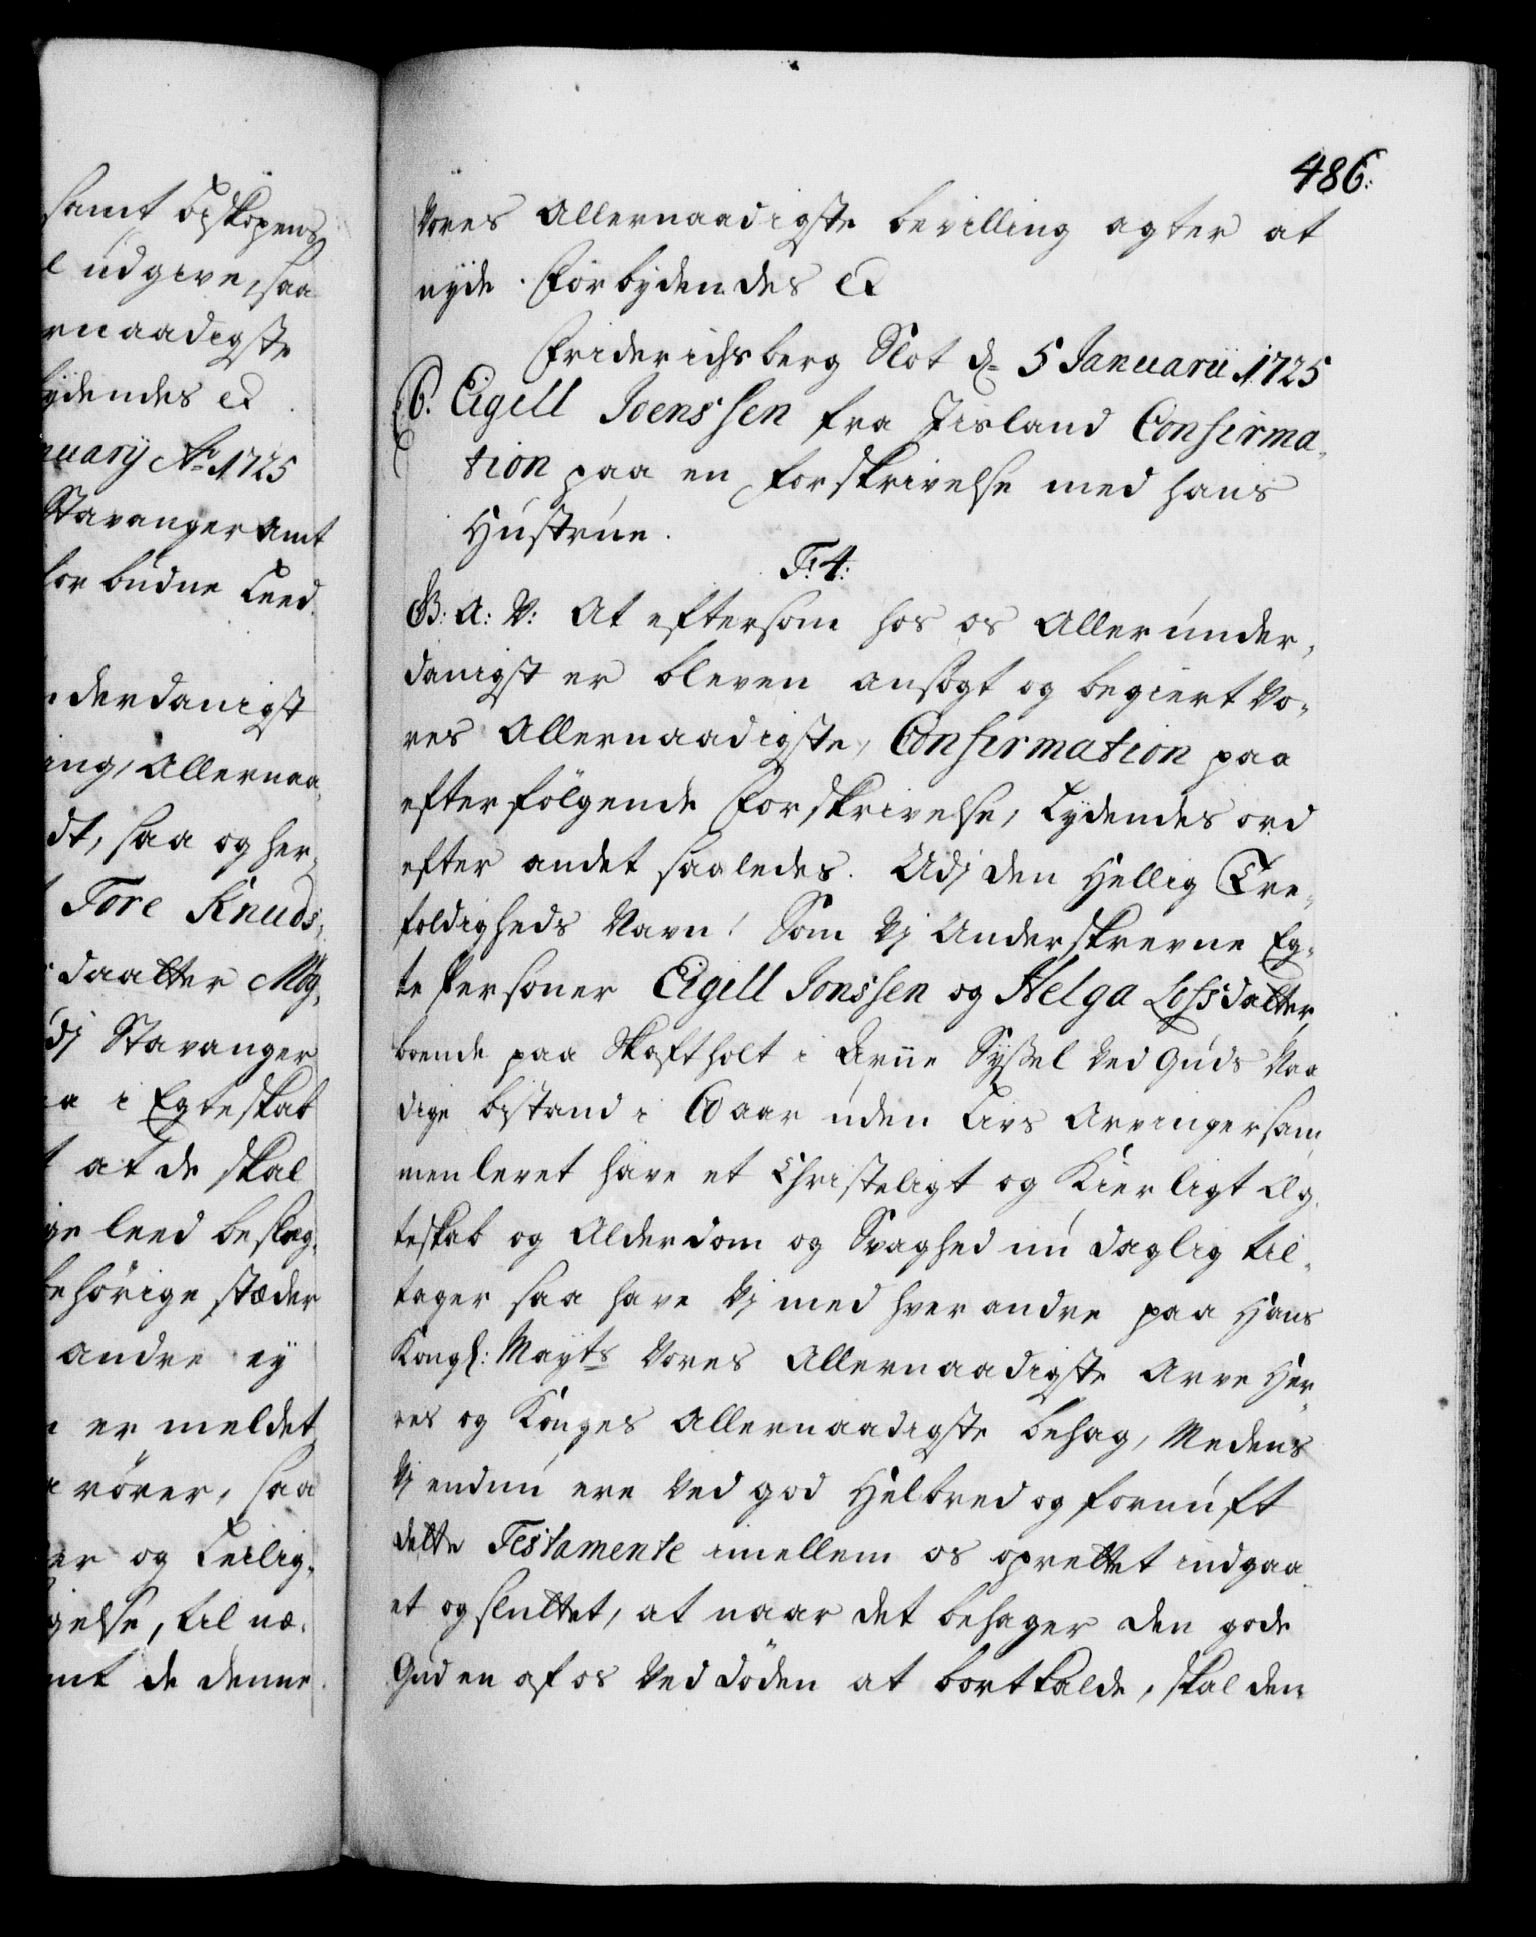 samt bispkopens
l udgive, saa
rnaadigste
bydendes etc
nuary Ao 1725
Stavanger Amt
forbudne Leed.
nderdanigst
ing, Allernaa
dt, saa og her,
Tore Knuds,
daatter Mog,
dj Stavanger
a i Egteskab
at de skal
ge leed beslæg,
behörige stæder
andre ey
er meldet,
rörer, saa
er og Leilig,
gelse, til næ,
mt de denne
486:
Vores Allernaadigste bevilling agter at
nyde. Forbydendes etc
Friderichsberg Slot d= 5 Januarii 1725
6. Eigell Joenssen fra Iisland Confirma,
tion paa en forskrivelse med hans
Hustrue.
F: 4:
G: A: V: At eftersom hos os Allerunder,
danigst er bleven ansögt og begiert Vo,
res Allernaadigste, Confirmation paa
efterfölgende Forskrivelse, Lydendes ord
efter andet saaledes. Udj den Hellig Tre,
foldigheds Navn! Som Vj Underskrevne Eg,
te Personer Eigell Jonssen og Helga Lofsdatter,
boende paa Skaftholt i Arne Syssel Ved Guds Naa
dige bistand i 60 aar uden Livs Arvinger sam,
menlevet have et Christeligt og Kierligt Æg,
teskab og Alderdom og Svaghed nu daglig til,
tager saa have Vj med hverandre paa Hans
Kongl: Mayts Vores Allernaadigste Arve Her,
res og Konges Allernaadigste behag, Medens
Vj endnu ere Ved god Helbred og fornuft
dette Testamente imellem os oprettet indgaa
et og sluttet, at naar det behager den gode
Gud en af os Ved döden at bortkalde, skal den